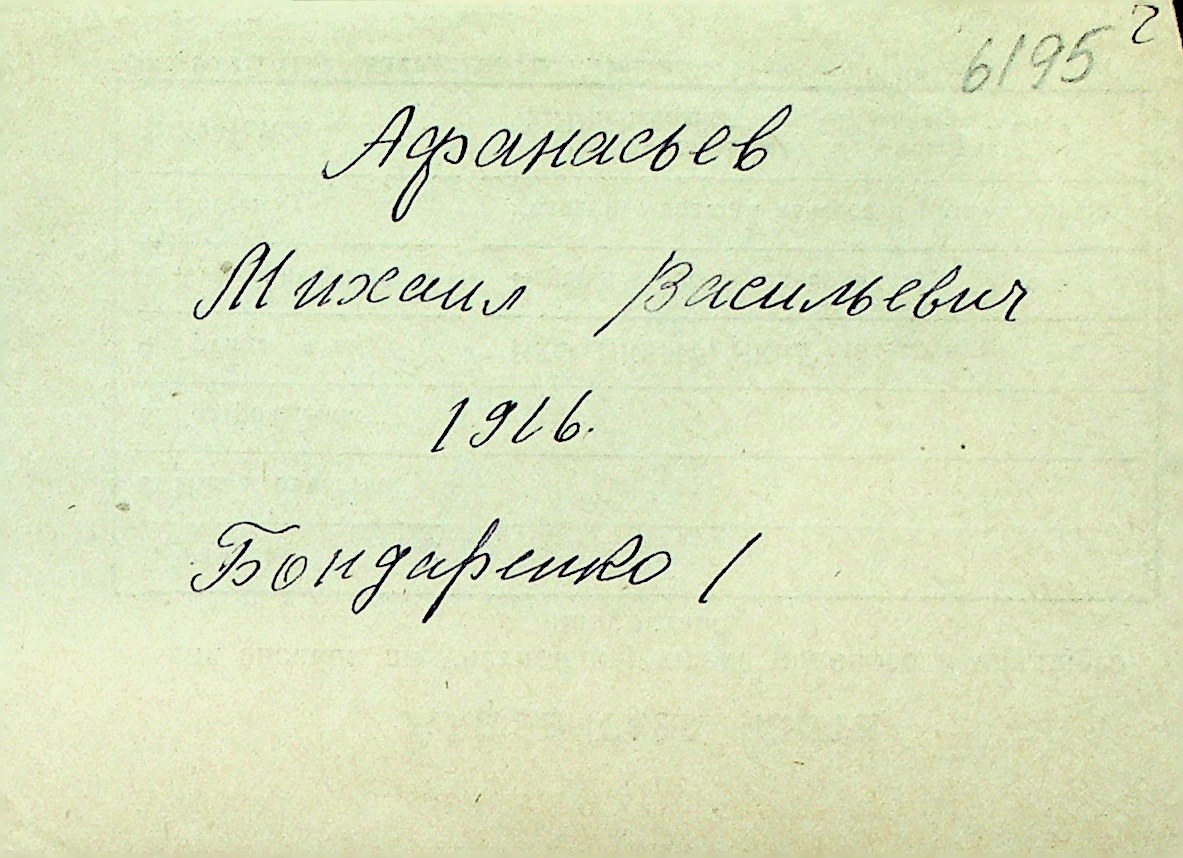 6195 2
Афанасьев
Михаил Васильевич
1916.
Бондаренко 1